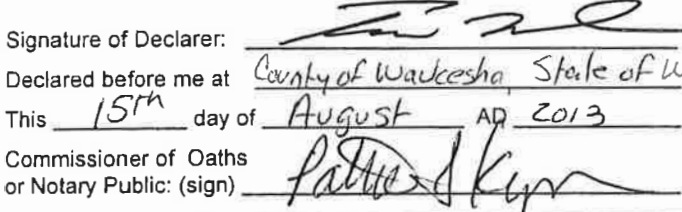 Signature of Declarer:
Declared before me at County of Waukesha, State of W
This 15th day of August AD 2013
Commissioner of Oaths
or Notary Public: (sign)